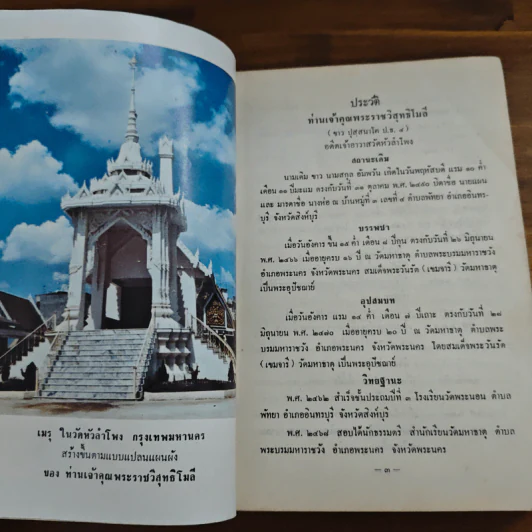 เมรุ ในวัดหัวลำโพง กรุงเทพมหานคร
สร้างขึ้นตามแบบแปลนแผนผัง
ของ ท่านเจ้าคุณพระราชวิสุทธิโมลี
ประวัติ
ท่านเจ้าคุณพระราชวิสุทธิโมลี
( ขาว ปุสฺสนาโค ป.ธ. ๔ )
อดีตเจ้าอาวาสวัดหัวลำโพง
สถานะเดิม
นามเดิม ขาว นามสกุล อัมพวัน เกิดในวันพฤหัสบดี แรม ๑๐ ค่ำ
เดือน ๑๑ ปีมะแม ตรงกับวันที่ ๑๑ ตุลาคม พ.ศ. ๒๔๕๐ บิดาชื่อ นายแผน
และ มารดาชื่อ นางห่อ ณ บ้านหมู่ที่ ๓ เลขที่ ๙ ตำบลทัพยา อำเภออินทร-
บุรี จังหวัดสิงห์บุรี
บรรพชา
เมื่อวันอังคาร ขึ้น ๑๕ ค่ำ เดือน ๘ ปีกุน ตรงกับวันที่ ๒๖ มิถุนายน
พ.ศ. ๒๔๖๖ เมื่ออายุครบ ๑๖ ปี ณ วัดมหาธาตุ ตำบลพระบรมมหาราชวัง
อำเภอพระนคร จังหวัดพระนคร สมเด็จพระวันรัต (เขมจารี) วัดมหาธาตุ
เป็นพระอุปัชฌาย์
อุปสมบท
เมื่อวันอังคาร แรม ๑๔ ค่ำ เดือน ๘ ปีเถาะ ตรงกับวันที่ ๒๘
มิถุนายน พ.ศ. ๒๔๗๐ เมื่ออายุครบ ๒๐ ปี ณ วัดมหาธาตุ ตำบลพระ
บรมมหาราชวัง อำเภอพระนคร จังหวัดพระนคร โดยสมเด็จพระวันรัต
(เขมจารี) วัดมหาธาตุ เป็นพระอุปัชฌาย์
วิทยฐานะ
พ.ศ. ๒๔๖๒ สำเร็จชั้นประถมปีที่ ๓ โรงเรียนวัดพระนอน ตำบล
ทัพยา อำเภออินทรบุรี จังหวัดสิงห์บุรี
พ.ศ. ๒๔๖๘ สอบได้นักธรรมตรี สำนักเรียนวัดมหาธาตุ ตำบล
พระบรมมหาราชวัง อำเภอพระนคร จังหวัดพระนคร
— ๓ —